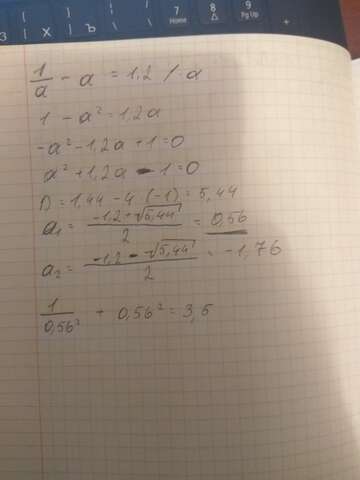 7 8 9
Home Δ Pg Up
З Х Ъ +
1/a - a = 1,2 / ·a
1 - a² = 1,2a
-a² - 1,2a + 1 = 0
a² + 1,2a - 1 = 0
D = 1,44 - 4·(-1) = 5,44
a₁ = (-1,2 + √5,44)/2 = 0,56
a₂ = (-1,2 - √5,44)/2 = -1,76
1/0,56² + 0,56² = 3,5